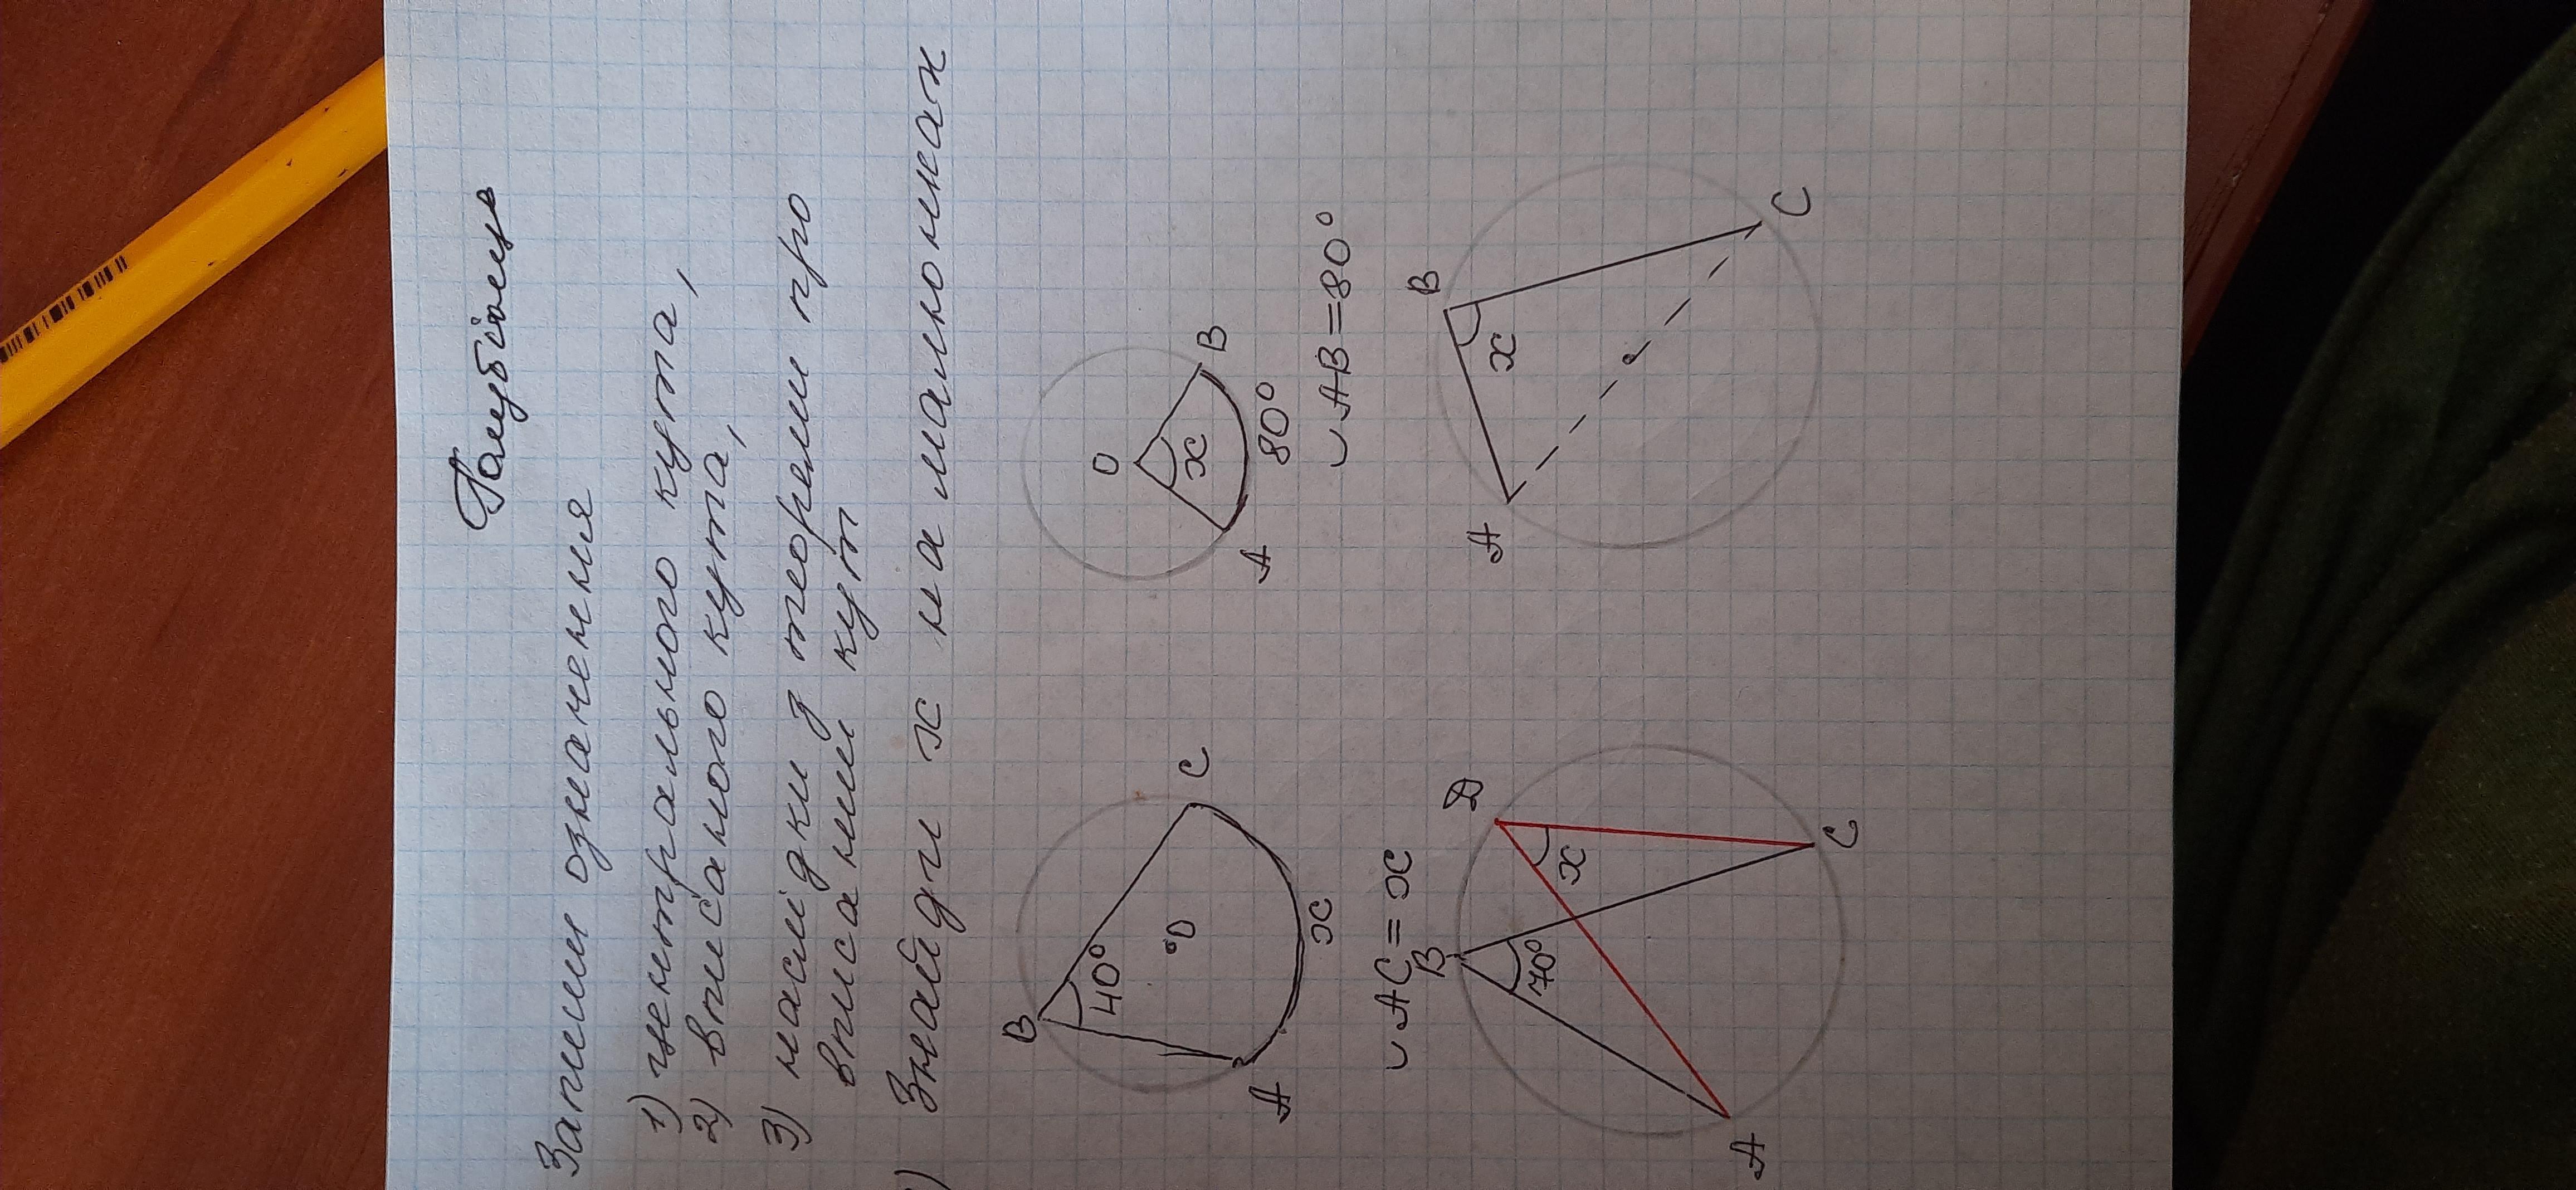 Запиши означення
1) центрального кута,
2) вписаного кута,
3) наслідки з теореми про
вписаний кут
Знайди x на малюнках
B
40°
O
A
C
x
◡AC=x
O
x
A
B
80°
◡AB=80°
B
70°
D
x
A
C
B
x
A
C